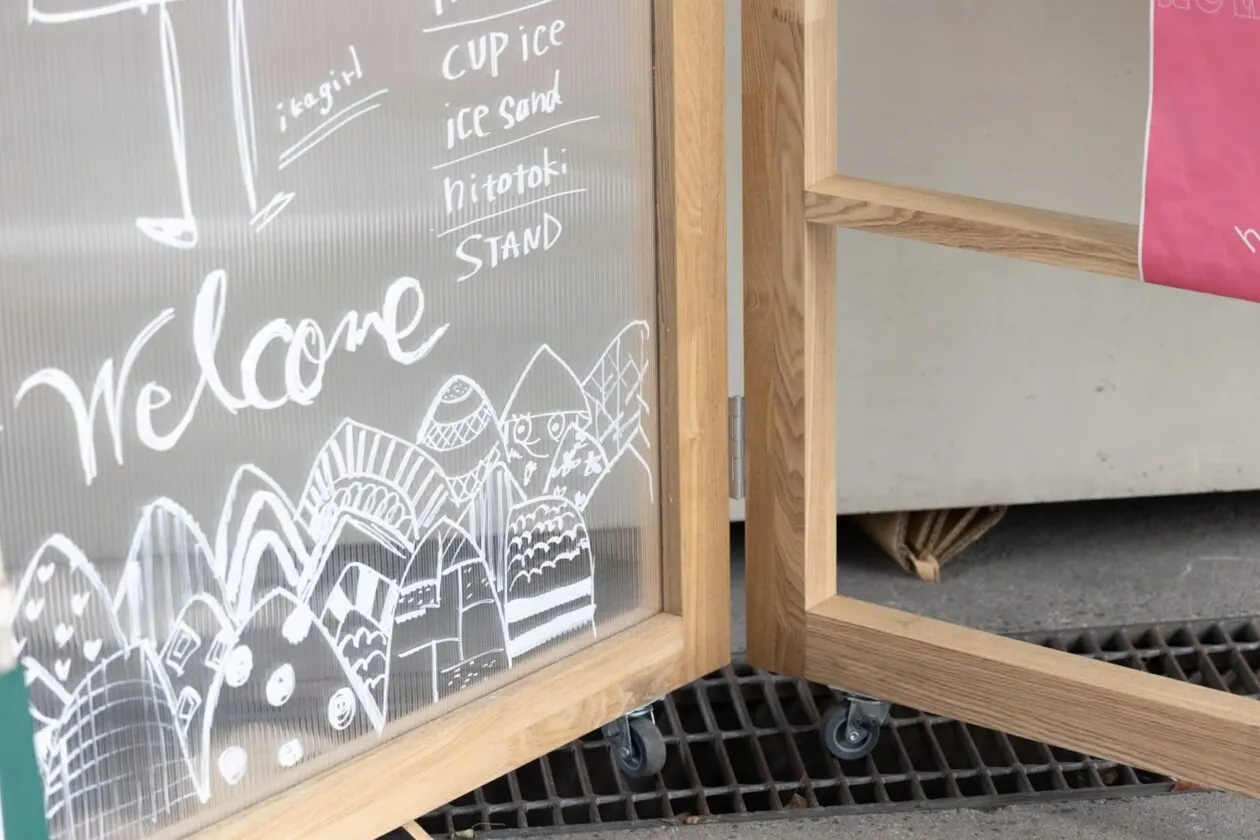 CUP ice
ice sand
hitotoki
STAND
ikagirl
Welcome